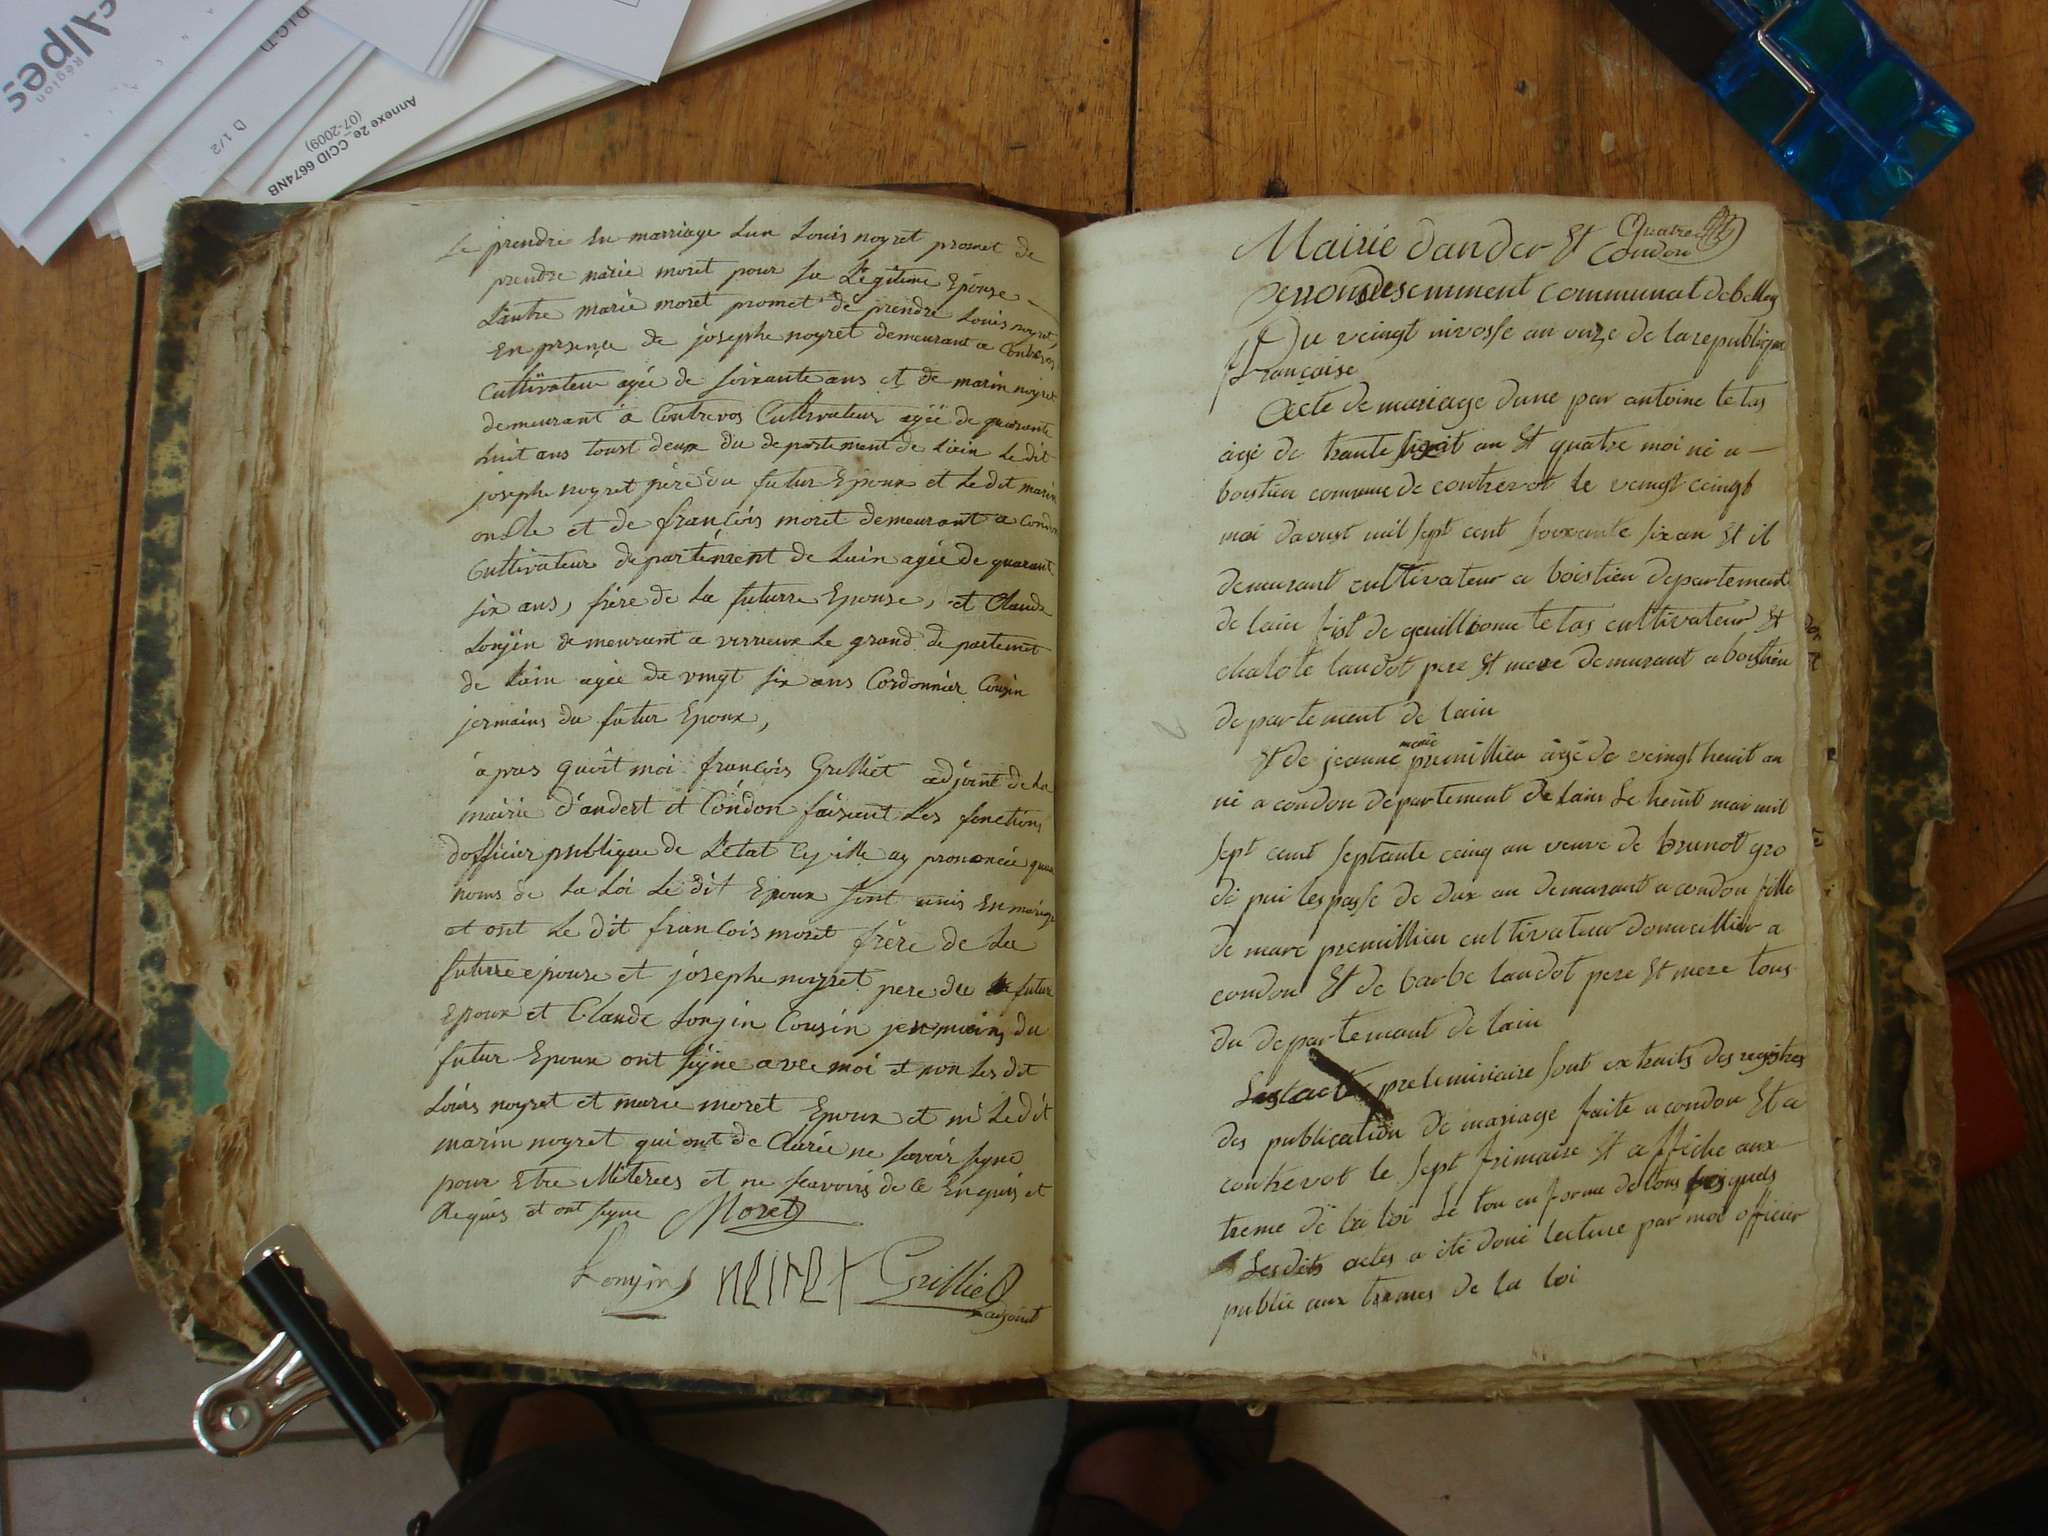 Alpes
Région
D.I.C.T.
D 1/2
Annexe 2e_CCID 6674NB
(07-2009)
Se prendre En marriage Lun Louis noyret promet de
prendre marie moret pour sa Légitime Epouse
L'autre marie moret promet de prendre Louis noyret,
En presnça de josephe noyret demeurant a Contrevos
Cultivateur agée de soixante ans et de marin noyret
demeurant a Contrevos Cultivateur agée de quarante
huit ans toust deux du departement de Lain Le dit
josephe noyret père du futur Epoux et Le dit marin
oncle et de françois moret demeurant a Condon
Cultivateur departement de Lain agée de quarant
six ans, frére de La futurre Epouse, et Claude
Lonjin demeurant a virrieux Le grand departemet
de Lain agée de vingt six ans Cordonnier Cousin
jermains du futur Epoux,
apras quoit moi françois Grilliet adjoint de La
mairie d'andert et Condon faisant Les fonctions
dofficier publique de L'etat Cyville ay prononcée quau
noms de La Loi Le dit Epoux sont unis En mariage
et ont Le dit françois moret frére de La
futurre epouse et josephe noyret pere du futur
Epoux et Claude Lonjin Cousin jermains du
futur Epoux ont signe avec moi et non Les dit
Louis noyret et marie moret Epoux et ni Le dit
marin noyret qui ont de Clarée ne savoir signe
pour Etre illiterées et ne scavoirs de Ce Enquis et
Requis et ont signe Moret
Lonjin neiret Grilliet
adjoint
Quatre
Mairie dander Et Condon
communal de belley
Du veingt nivosse an onze de la republique
françoise
Acte de mariage dune par antoine tetas
aigé de trante an Et quatre moi né a
boistieu commune de contrevot le veingt ceingt
moi daoust mil sept cent soixante six an Et il
demurant cultivateur a boistieu departement
de lain fist de geuilloume tetas cultivateur Et
chalote laudot pere Et mere demurant a boistieu
departement de lain
marie
Et de jeanne premillieu aigé de veingt heuit an
né a condon departement de lain Le heuit mai mil
sept cent septante ceinq an veuve de brunot gro
de pui les passe de dux an demurant a condon fille
de marc premillieu cultivateur domicillier a
condon Et de barbe laudot pere Et mere tous
du departemant de lain
Les acte preleminaire sont extraits des registres
des publication de mariage faite a condon Et a
contrevot le sept frimaire Et affiche aux
treme de la loi Le tou en forme de tous lesquels
Lesdits actes a été doné lecture par moi officier
public aux trames de la loi